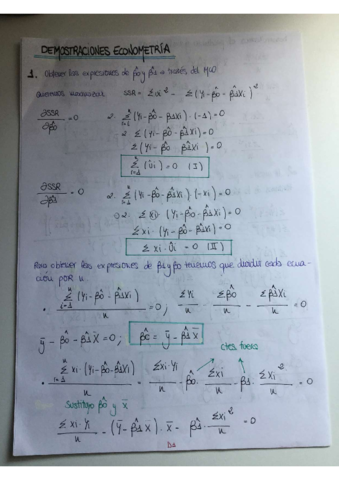 DEMOSTRACIONES ECONOMETRÍA
1. Obtener las expresiones de β̂0 y β̂1 a través del MCO
Queremos minimizar SSR = Σûi² = Σ(yi - β̂0 - β̂1xi)²
∂SSR/∂β̂0 = 0 2· Σ(yi - β̂0 - β̂1xi)·(-1) = 0
2 Σ(yi - β̂0 - β̂1xi) = 0
Σ(yi - β̂0 - β̂1xi) = 0
Σ(ûi) = 0 (I)
∂SSR/∂β̂1 = 0 2· Σ(yi - β̂0 - β̂1xi)·(-xi) = 0
2· Σxi·(yi - β̂0 - β̂1xi) = 0
Σxi·(yi - β̂0 - β̂1xi) = 0
Σxi·ûi = 0 (II)
Para obtener las expresiones de β1 y β0 tenemos que dividir cada ecua-
ción por n.
· Σ(yi - β̂0 - β̂1xi)/n = 0; Σyi/n - Σβ̂0/n - Σβ̂1xi/n = 0
ȳ - β̂0 - β̂1x̄ = 0; β̂0 = ȳ - β̂1x̄
ctes fuera
· Σxi·(yi - β̂0 - β̂1xi)/n = Σxi·yi/n - β̂0·Σxi/n - β̂1·Σxi²/n = 0
Sustituyo β̂0 y x̄
Σxi·yi/n - (ȳ - β̂1x̄)·x̄ - β̂1·Σxi²/n = 0